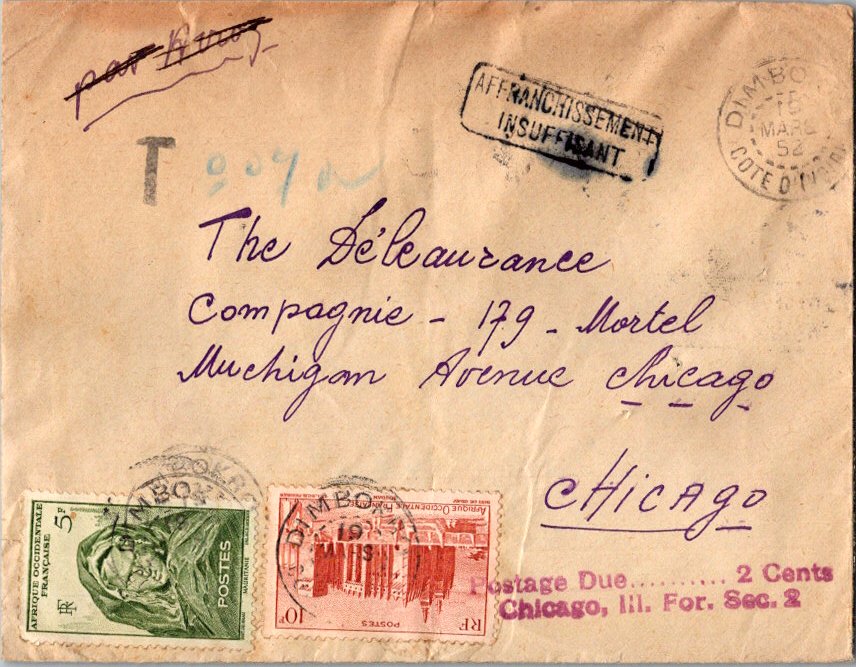 par Avion
AFFRANCHISSEMENT
INSUFFISANT
DIMBO
15
MARS
52
COTE D'IVOIRE
T
The Déleaurance
Compagnie - 179 - Mortel
Muchigan Avenue Chicago
CHICAGO
AFRIQUE OCCIDENTALE
FRANÇAISE
5F
RF
POSTES
MAURITANIE
DIMBOK
DIMBOK
19
AFRIQUE OCCIDENTALE FRANÇAISE
10F
POSTES
RF
Postage Due.......... 2 Cents
Chicago, Ill. For. Sec. 2